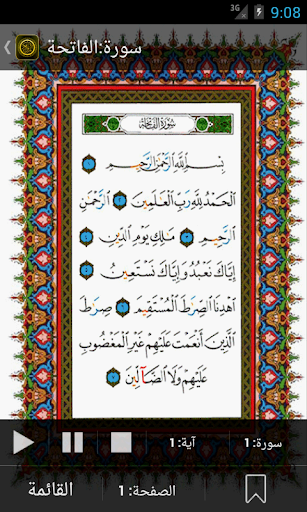 3G 9:08
سورة:الفاتحة
سُورَةُ الفَاتِحَةِ
بِسْمِ ٱللَّهِ ٱلرَّحْمَٰنِ ٱلرَّحِيمِ ١
ٱلْحَمْدُ لِلَّهِ رَبِّ ٱلْعَٰلَمِينَ ٢ ٱلرَّحْمَٰنِ
ٱلرَّحِيمِ ٣ مَٰلِكِ يَوْمِ ٱلدِّينِ ٤
إِيَّاكَ نَعْبُدُ وَإِيَّاكَ نَسْتَعِينُ ٥
ٱهْدِنَا ٱلصِّرَٰطَ ٱلْمُسْتَقِيمَ ٦ صِرَٰطَ
ٱلَّذِينَ أَنْعَمْتَ عَلَيْهِمْ غَيْرِ ٱلْمَغْضُوبِ
عَلَيْهِمْ وَلَا ٱلضَّآلِّينَ ٧
سورة: 1
آية: 1
الصفحة: 1
القائمة